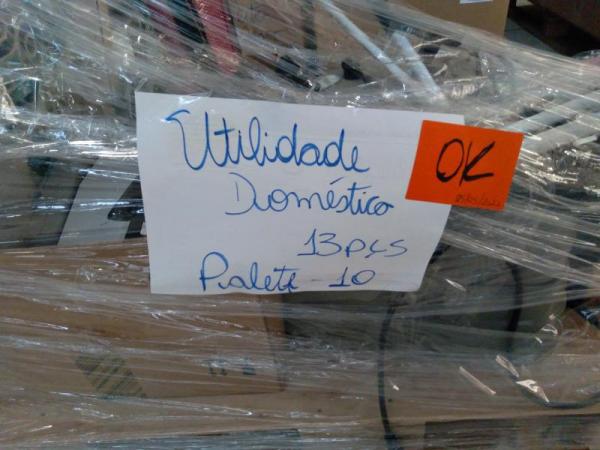 Utilidade
Doméstico
13 pçs
Palete - 10
OK